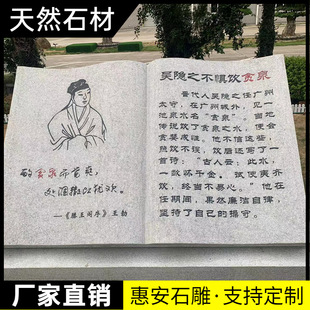 天然石材
吴隐之不惧饮贪泉
晋代人吴隐之任广州
太守，在广州城外，见一
池泉水名“贪泉”。当地
传说饮了贪泉之水，便会
贪婪成性。他不信这些，
照饮不误，饮后还写了一
首诗：“古人云此水，
一歃怀千金。试使夷齐
饮，终当不易心。”他在
任期间，果然廉洁自律，
坚持了自己的操守。
酌贪泉而觉爽，
处涸辙以犹欢。
—《滕王阁序》王勃
厂家直销
惠安石雕·支持定制